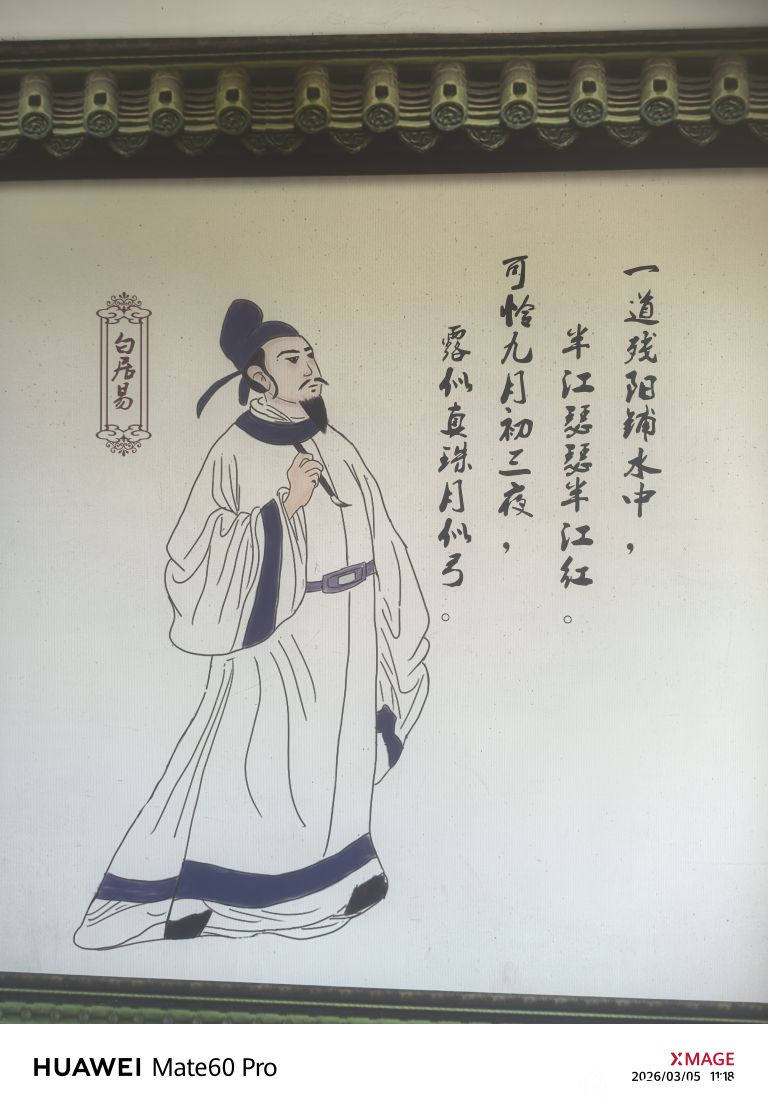 一道残阳铺水中，
半江瑟瑟半江红。
可怜九月初三夜，
露似真珠月似弓。
白居易
HUAWEI Mate60 Pro
XMAGE
2026/03/05 11:18